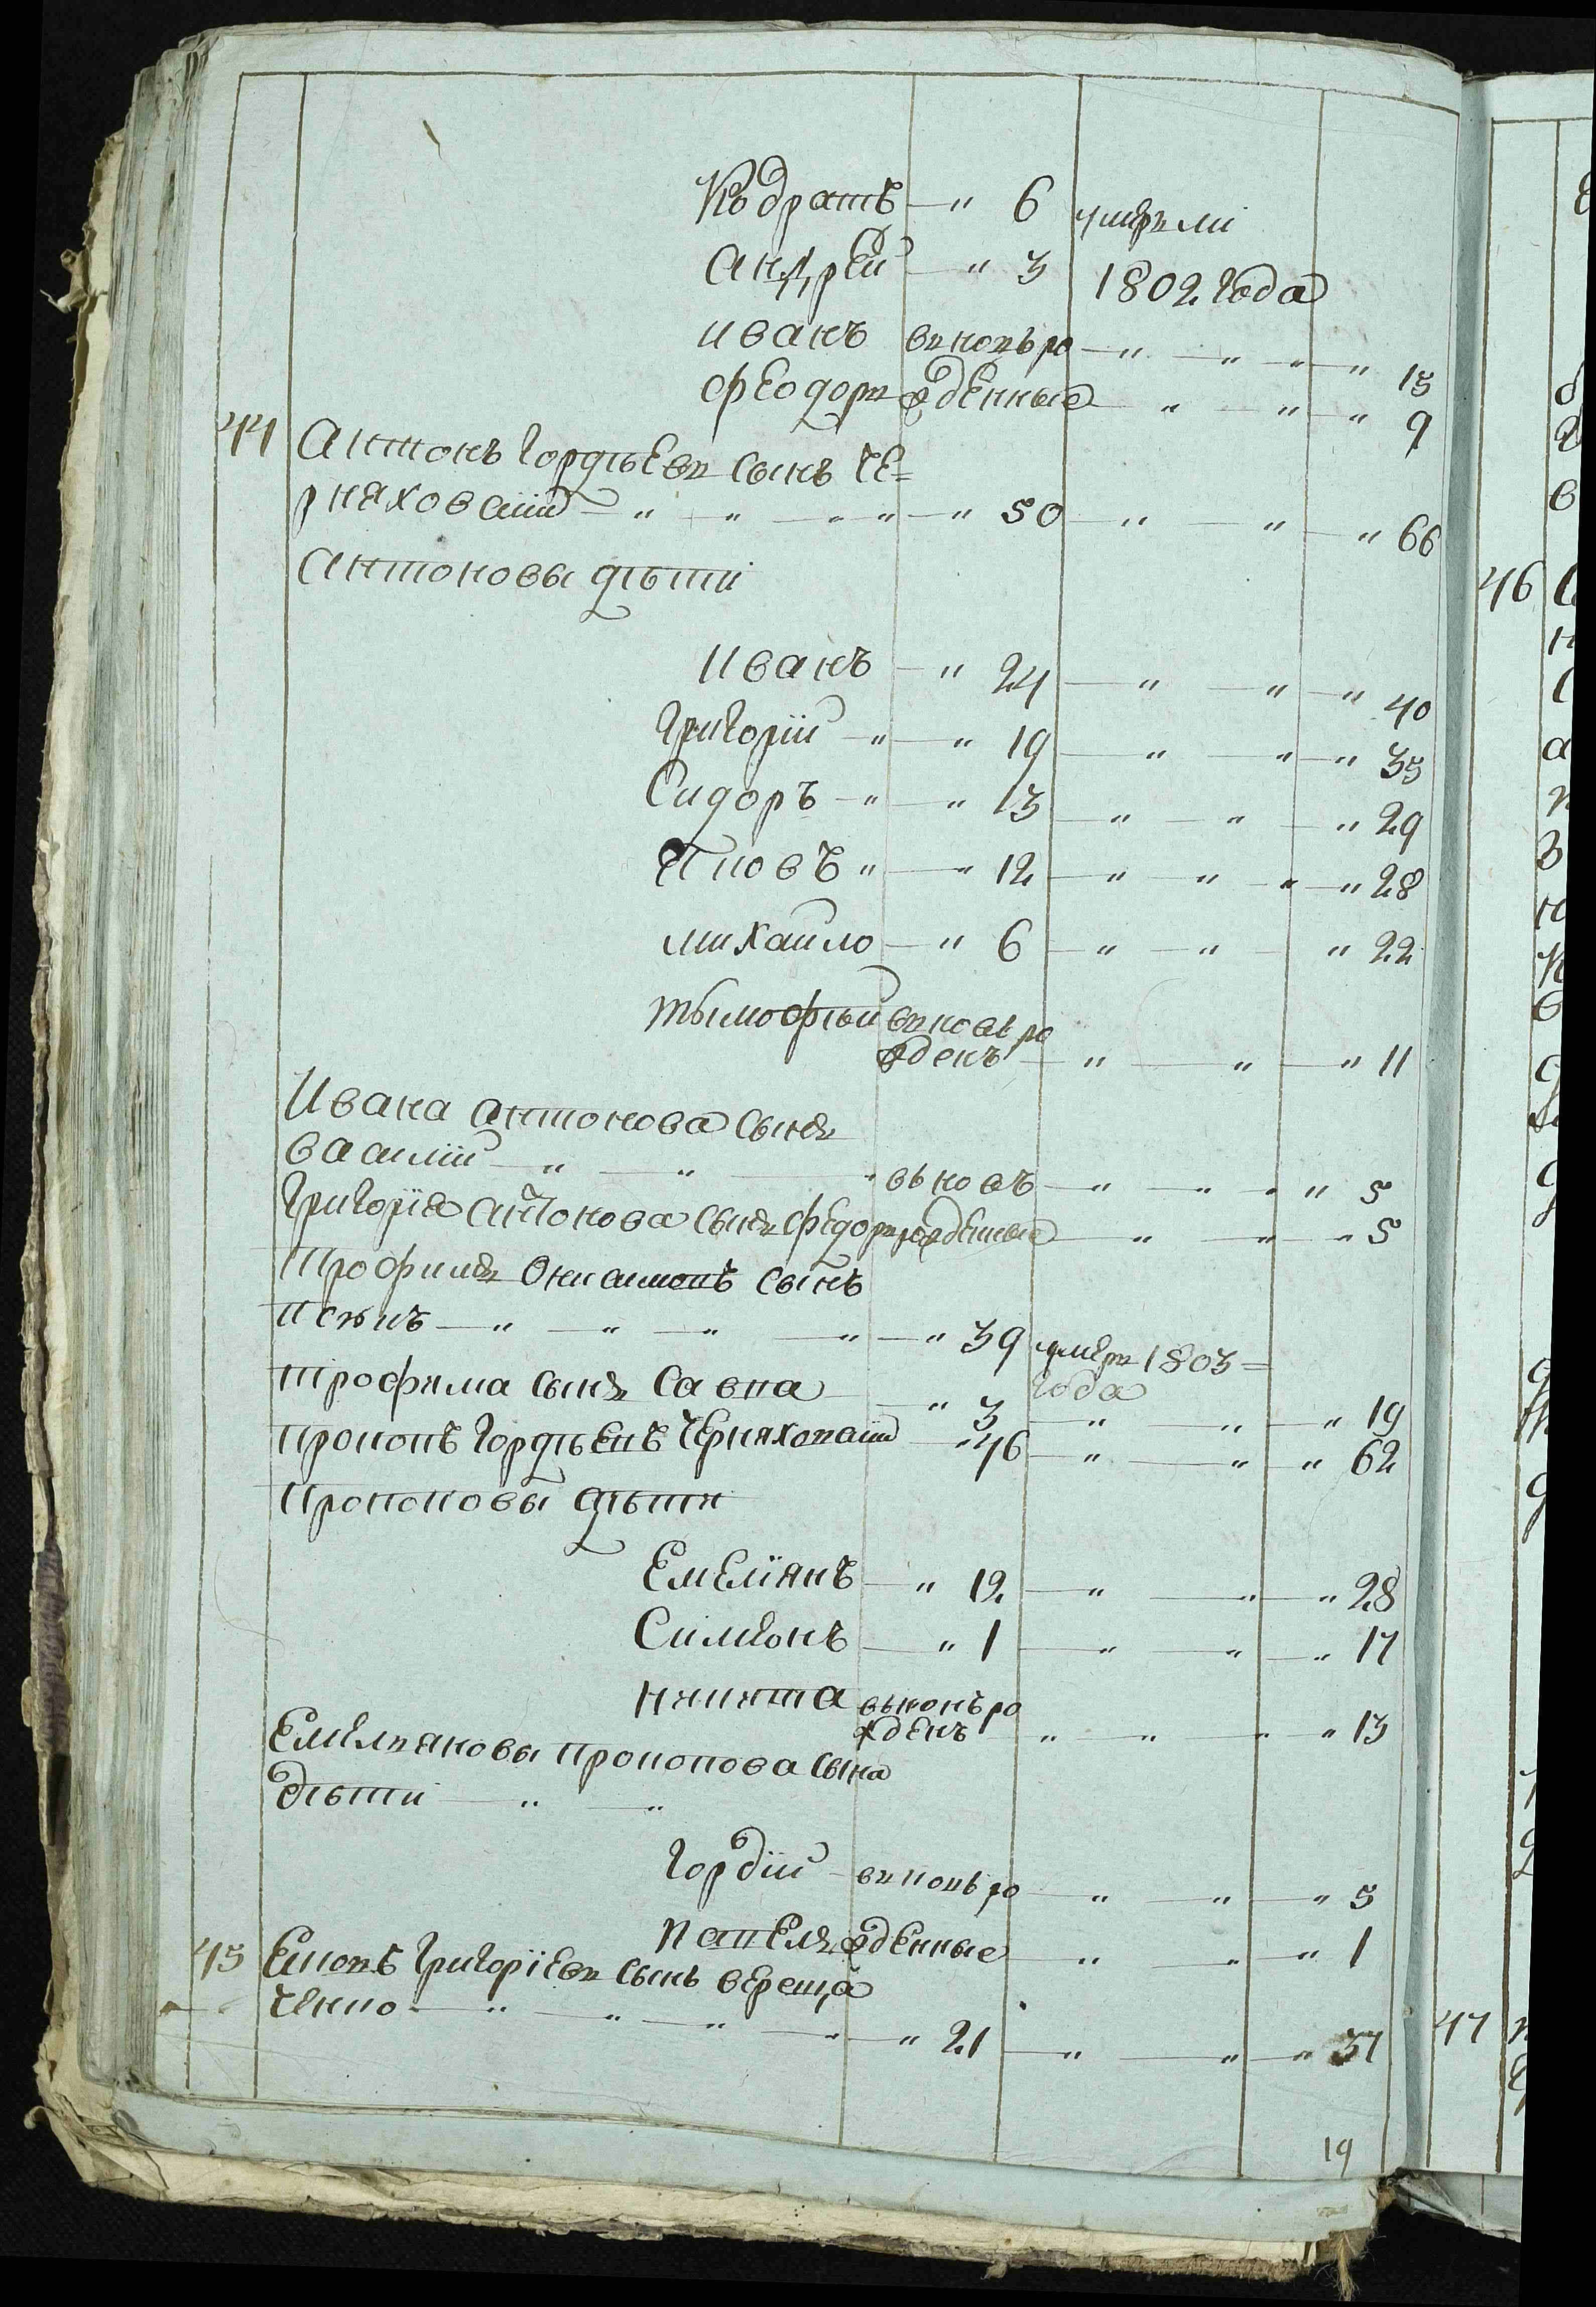 Кодратъ — " 6 умерли
Андрей — " 3 1802 года
Иванъ вновь ро — " — " — " — " 15
Феодоръ жденные — " — " — " 9
44 Антонъ Гордѣевъ сынъ Че=
рняховский — " — " — " — " — " 50 — " — " — " 66
Антоновы дѣти
Иванъ — " 24 — " — " — " 40
Григорій — " — " 19 — " — " — " 35
Сидоръ — " — " 13 — " — " — " 29
Яковъ " — " 12 — " — " — " — " 28
Михайло — " 6 — " — " — " 22
Тымофѣй вновь ро
жденъ — " — " — " 11
Ивана Антонова сынъ
Василій — " — " — " вьновъ — " — " — " " 5
Григорія Антонова сынъ Федоръ рожденные — " — " — " 5
Трофимъ сынъ
— " — " — " — " — " 39 умеръ 1803=
года
Трофима сынъ Савка — " 3 — " — " — " 19
Прокопъ Гордѣевъ Черняховский — " 46 — " — " — " 62
Прокоповы дѣти
Емеліянъ — " 12 — " — " — " 28
Симионъ — " 1 — " — " — " 17
Никита вьновь ро
жденъ " — " — " — " 13
Емельяновы Прокопова сына
дѣти — " — "
Гордій — вновь ро — " — " — " 5
Павелъ жденные — " — " — " 1
45 Григоріевъ сынъ Вереща
ченко — " — " — " — " — " 21 — " — " — " 37
19
46
47